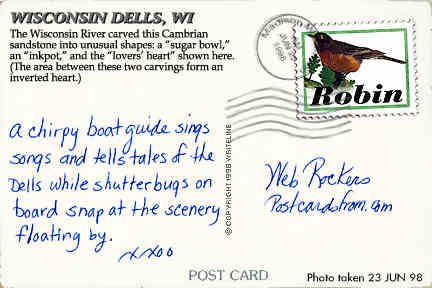 WISCONSIN DELLS, WI
The Wisconsin River carved this Cambrian
sandstone into unusual shapes: a "sugar bowl,"
an "inkpot," and the "lovers' heart" shown here.
(The area between these two carvings form an
inverted heart.)
Robin
A chirpy boat guide sings
songs and tells tales of the
Dells while shutterbugs on
board snap at the scenery
floating by.
xxoo
© COPYRIGHT 1998 VISITELINE
Web Rockers
Postcardsfrom.com
POST CARD
Photo taken 23 JUN 98